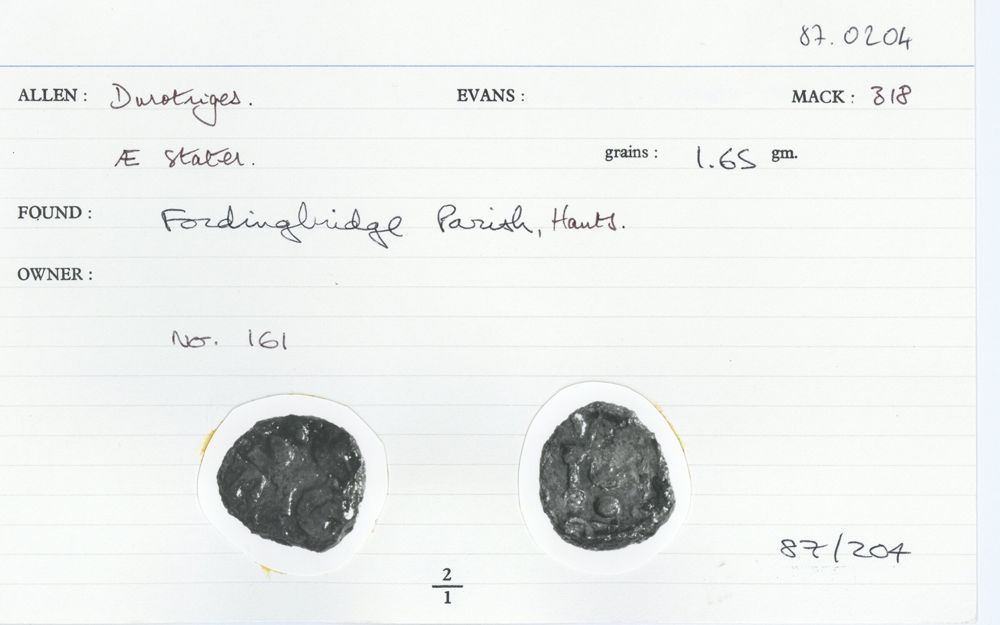 87.0204
ALLEN : Durotriges. EVANS : MACK : 318
Æ Stater. grains : 1.65 gm.
FOUND : Fordingbridge Parish, Hants.
OWNER :
No. 161
87/204
2
1